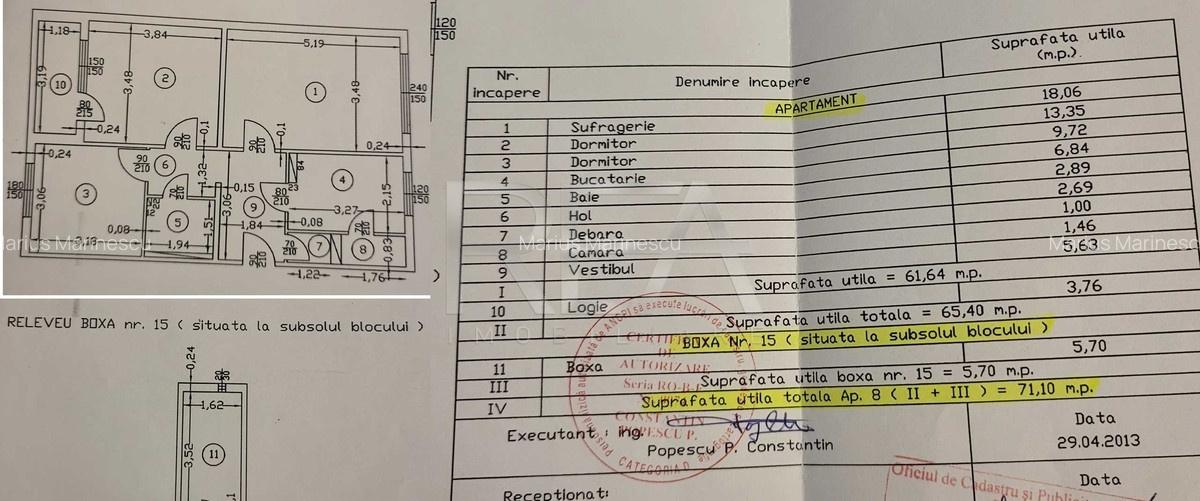 1,18
3,84
5,19
120
150
150
150
3,19
10
2
3,48
1
3,48
240
150
80
215
0,24
90
210
0,1
90
210
0,1
0,24
84
0,24
90
210
6
1,32
0,15
23
4
2,15
180
150
3,06
3
70
210
22
5
1,51
3,06
9
80
210
3,27
120
150
0,08
1,94
1,84
0,08
90
210
70
210
7
8
0,83
1,22
1,76
)
Marius Marinescu
Marius Marinescu
Marius Marinesc
RELEVEU BOXA nr. 15 ( situata la subsolul blocului )
0,24
20
30
1,62
3,52
11
Nr. incapere
Denumire incapere
Suprafata utila (m.p.).
APARTAMENT
1 Sufragerie 18,06
2 Dormitor 13,35
3 Dormitor 9,72
4 Bucatarie 6,84
5 Baie 2,89
6 Hol 2,69
7 Debara 1,00
8 Camara 1,46
9 Vestibul 5,63
I Suprafata utila = 61,64 m.p.
10 Logie 3,76
II Suprafata utila totala = 65,40 m.p.
BOXA Nr. 15 ( situata la subsolul blocului )
11 Boxa 5,70
III Suprafata utila boxa nr. 15 = 5,70 m.p.
IV Suprafata utila totala Ap. 8 ( II + III ) = 71,10 m.p.
Executant : ing.
Popescu P. Constantin
Data
29.04.2013
Receptionat:
Data
CERTIFI
DE
AUTORIZARE
Seria RO-B-F
CONSTANTIN
POPESCU P.
CATEGORIA D
Oficiul de Cadastru si Publici